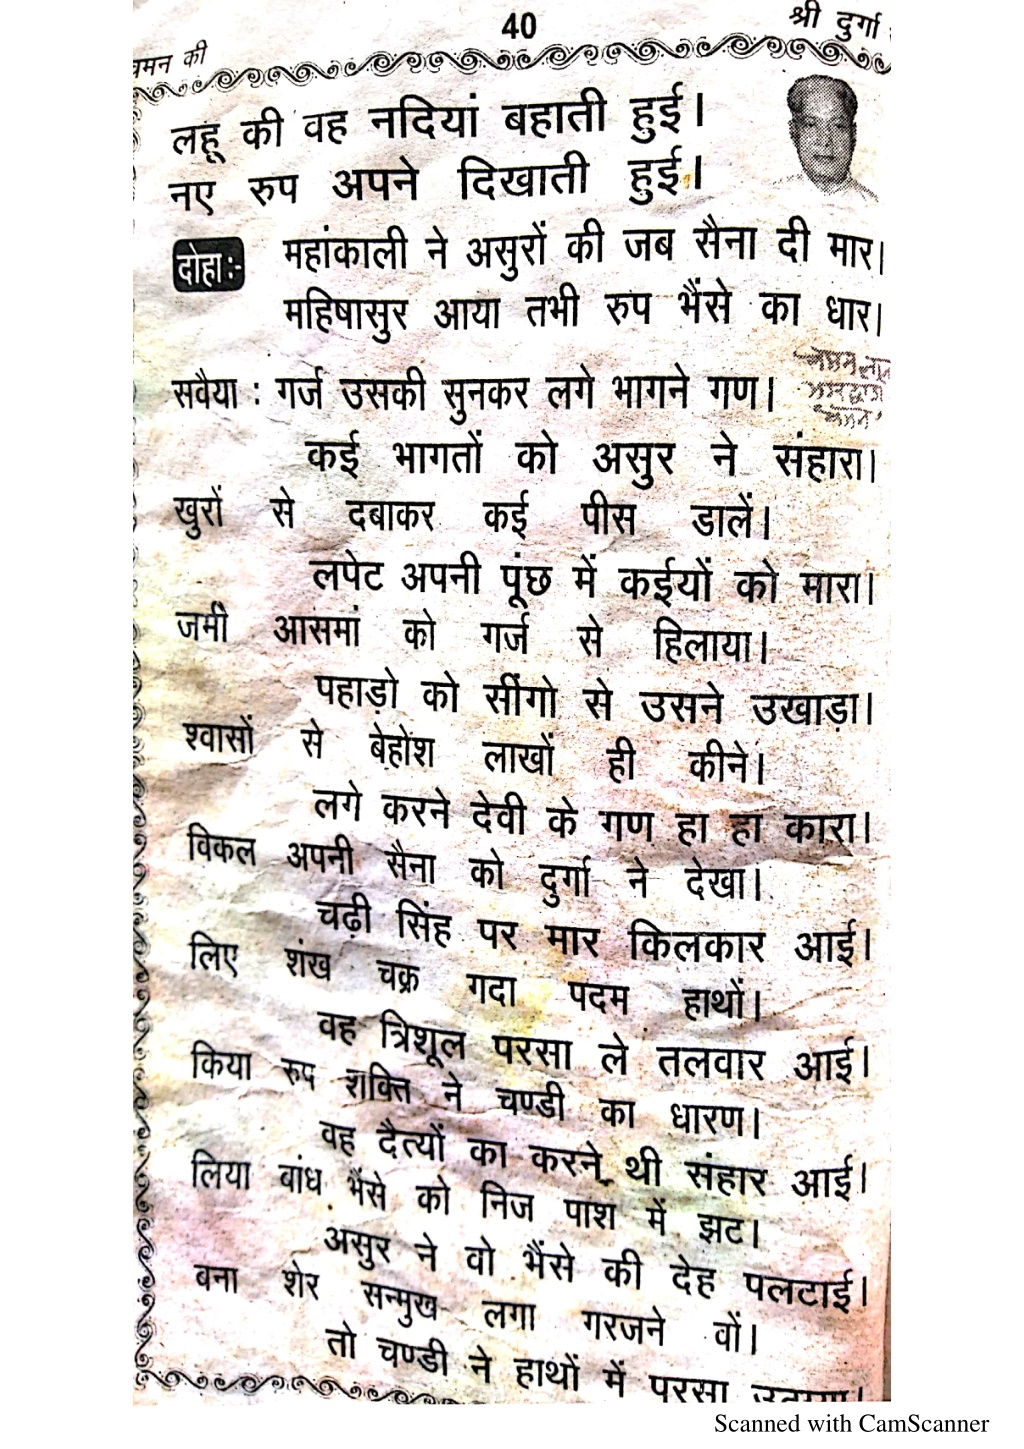 40
श्री दुर्गा
चमन की
लहू की वह नदियां बहाती हुई।
नए रुप अपने दिखाती हुई।
दोहा:- महांकाली ने असुरों की जब सैना दी मार।
महिषासुर आया तभी रुप भैंसे का धार।
सवैया : गर्ज उसकी सुनकर लगे भागने गण।
कई भागतों को असुर ने संहारा।
खुरों से दबाकर कई पीस डालें।
लपेट अपनी पूंछ में कईयों को मारा।
जमीं आसमां को गर्ज से हिलाया।
पहाड़ो को सींगो से उसने उखाड़ा।
श्वासों से बेहोश लाखों ही कीने।
लगे करने देवी के गण हा हा कारा।
विकल अपनी सैना को दुर्गा ने देखा।
चढ़ी सिंह पर मार किलकार आई।
लिए शंख चक्र गदा पदम हाथों।
वह त्रिशूल परसा ले तलवार आई।
किया रुप शक्ति ने चण्डी का धारण।
वह दैत्यों का करने थी संहार आई।
लिया बांध भैंसे को निज पाश में झट।
असुर ने वो भैंसे की देह पलटाई।
बना शेर सन्मुख लगा गरजने वों।
तो चण्डी ने हाथों में परसा
Scanned with CamScanner